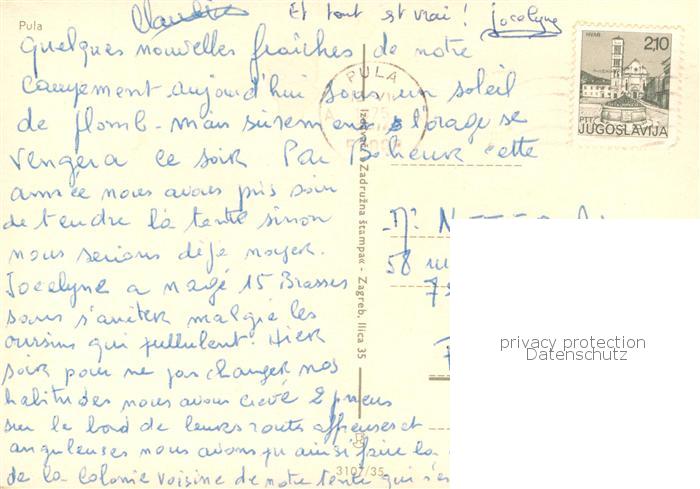 Pula
Claudine Et tout est vrai ! Jocelyne
Quelques nouvelles fraîches de notre
campement aujourd'hui sous un soleil
de plomb - mais surement l'orage se
vengera ce soir Par Boheur cette
année nous avons pris soin
de tendre la tente sinon
nous serions déjà noyer.
Jocelyne a nagé 15 Brasses
sans s'arrêter malgré les
oursins qui pullulent. Hier
soir pour ne pas changer nos
habitudes nous avons crevé 2 pneus
sur le bord de leurs routes affreuses et
anguleuses nous avons pu ainsi faire la
de la colonie voisine de notre tente qui s'en
PULA
HVAR
2,10
PTT
JUGOSLAVIJA
Izdavač: Zadružna štampa - Zagreb, Ilica 35
3107/35
58
privacy protection
Datenschutz